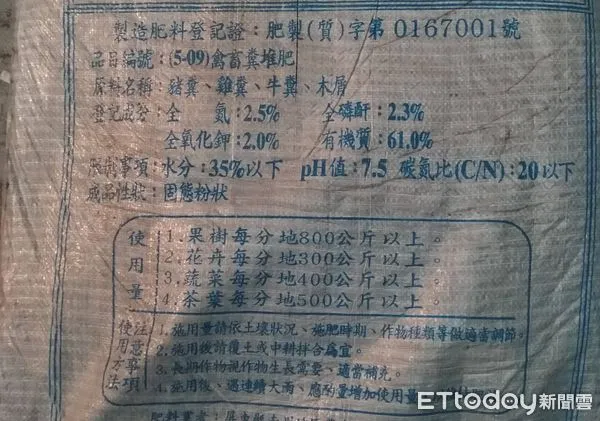 製造肥料登記證：肥製(質)字第0167001號
品目編號：(5-09)禽畜糞堆肥
原料名稱：豬糞、雞糞、牛糞、木屑
登記成分：全 氮：2.5% 全磷酐：2.3%
全氧化鉀：2.0% 有機質：61.0%
限制事項：水分：35%以下 pH值：7.5 碳氮比(C/N)：20以下
成品性狀：固態粉狀
使用量
1.果樹每分地800公斤以上。
2.花卉每分地300公斤以上。
3.蔬菜每分地400公斤以上。
4.茶葉每分地500公斤以上。
使用方法
注意事項
1.施用量請依土壤狀況、施肥時期、作物種類等做適當調節。
2.施用後請覆土或中耕拌合為宜。
3.長期作物視作物生長需要、適當補充。
4.施用後、遇連續大雨、應酌量增加使用量
ETtoday新聞雲
肥料業者：屏東縣